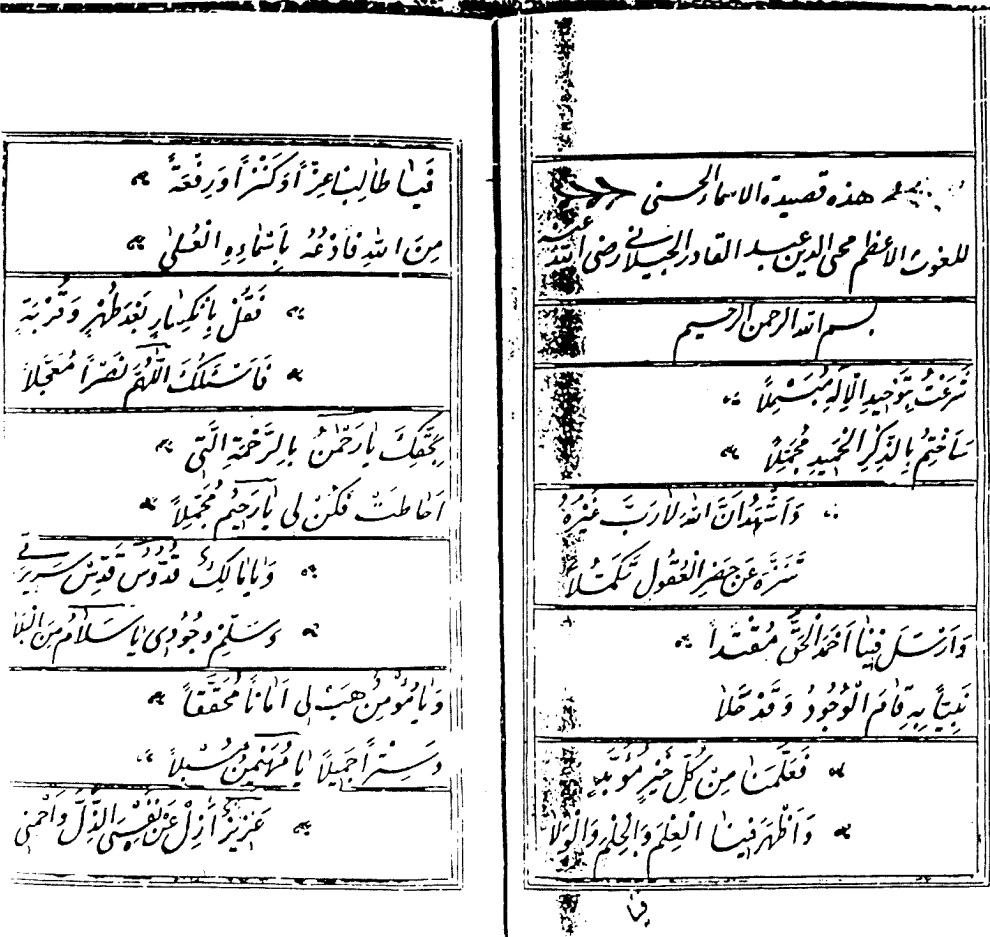 هذه قصيدة الاسماء الحسنى
للغوث الاعظم محى الدين عبد القادر الجيلانى رضى الله عنه
بسم الله الرحمن الرحيم
شَرَعْتُ بِتَوْحِيدِ الْاِلٰهِ مُبَسْمِلًا
سَاَخْتِمُ بِالذِّكْرِ الْحَمِيدِ مُجَمِّلًا
وَاَشْهَدُ اَنَّ اللهَ لَا رَبَّ غَيْرُهُ
تَنَزَّهَ عَنْ حَصْرِ الْعُقُولِ تَكَمُّلًا
وَاَرْسَلَ فِينَا اَحْمَدَ الْحَقِّ مُقْتَدًا
نَبِيًّا بِهِ قَامَ الْوُجُودُ وَقَدْ خَلَا
فَعَلَّمَنَا مِنْ كُلِّ خَيْرٍ مُؤَيَّدٍ
وَاَظْهَرَ فِينَا الْعِلْمَ وَالْحِلْمَ وَالْوَلَا
فيا
فَيَا طَالِبًا عِزًّا وَكَنْزًا وَرِفْعَةً
مِنَ اللهِ فَادْعُهُ بِاَسْمَائِهِ الْعُلٰى
فَقُلْ بِانْكِسَارٍ بَعْدَ طُهْرٍ وَقُرْبَةٍ
فَاَسْئَلُكَ اللّٰهُمَّ نَصْرًا مُعَجَّلًا
بِحَقِّكَ يَا رَحْمٰنُ بِالرَّحْمَةِ الَّتِى
اَحَاطَتْ فَكُنْ لِى يَا رَحِيمُ مُجَمِّلًا
وَيَا مَالِكُ قُدُّوسُ قَدِّسْ سَرِيرَتِى
وَسَلِّمْ وُجُودِى يَا سَلَامُ مِنَ الْبَلَا
وَيَا مُؤْمِنُ هَبْ لِى اَمَانًا مُحَقَّقًا
وَسِتْرًا جَمِيلًا يَا مُهَيْمِنُ مُسْبَلًا
عَزِيزُ اَزِلْ عَنْ نَفْسِىَ الذُّلَّ وَاحْمِنِى